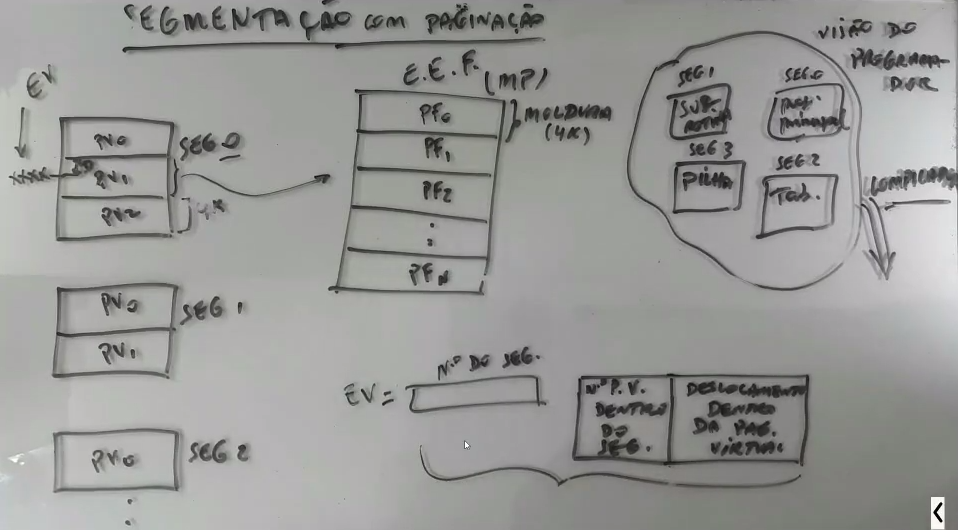 SEGMENTAÇÃO COM PAGINAÇÃO
EV
XXXX
PV0
PV1
PV2
SEG 0
4K
PV0
PV1
SEG 1
PV0
SEG 2
E.E.F. (MP)
PF0
PF1
PF2
PFN
MOLDURA
(4K)
VISÃO DO
PROGRAMA-
DOR
SEG 1
SUB-
ROTINA
SEG 0
PROG.
PRINCIPAL
SEG 3
PILHA
SEG 2
TAB.
COMPILADOR
EV =
Nº DO SEG.
Nº P.V.
DENTRO
DO
SEG.
DESLOCAMENTO
DENTRO
DA PAG.
VIRTUAL